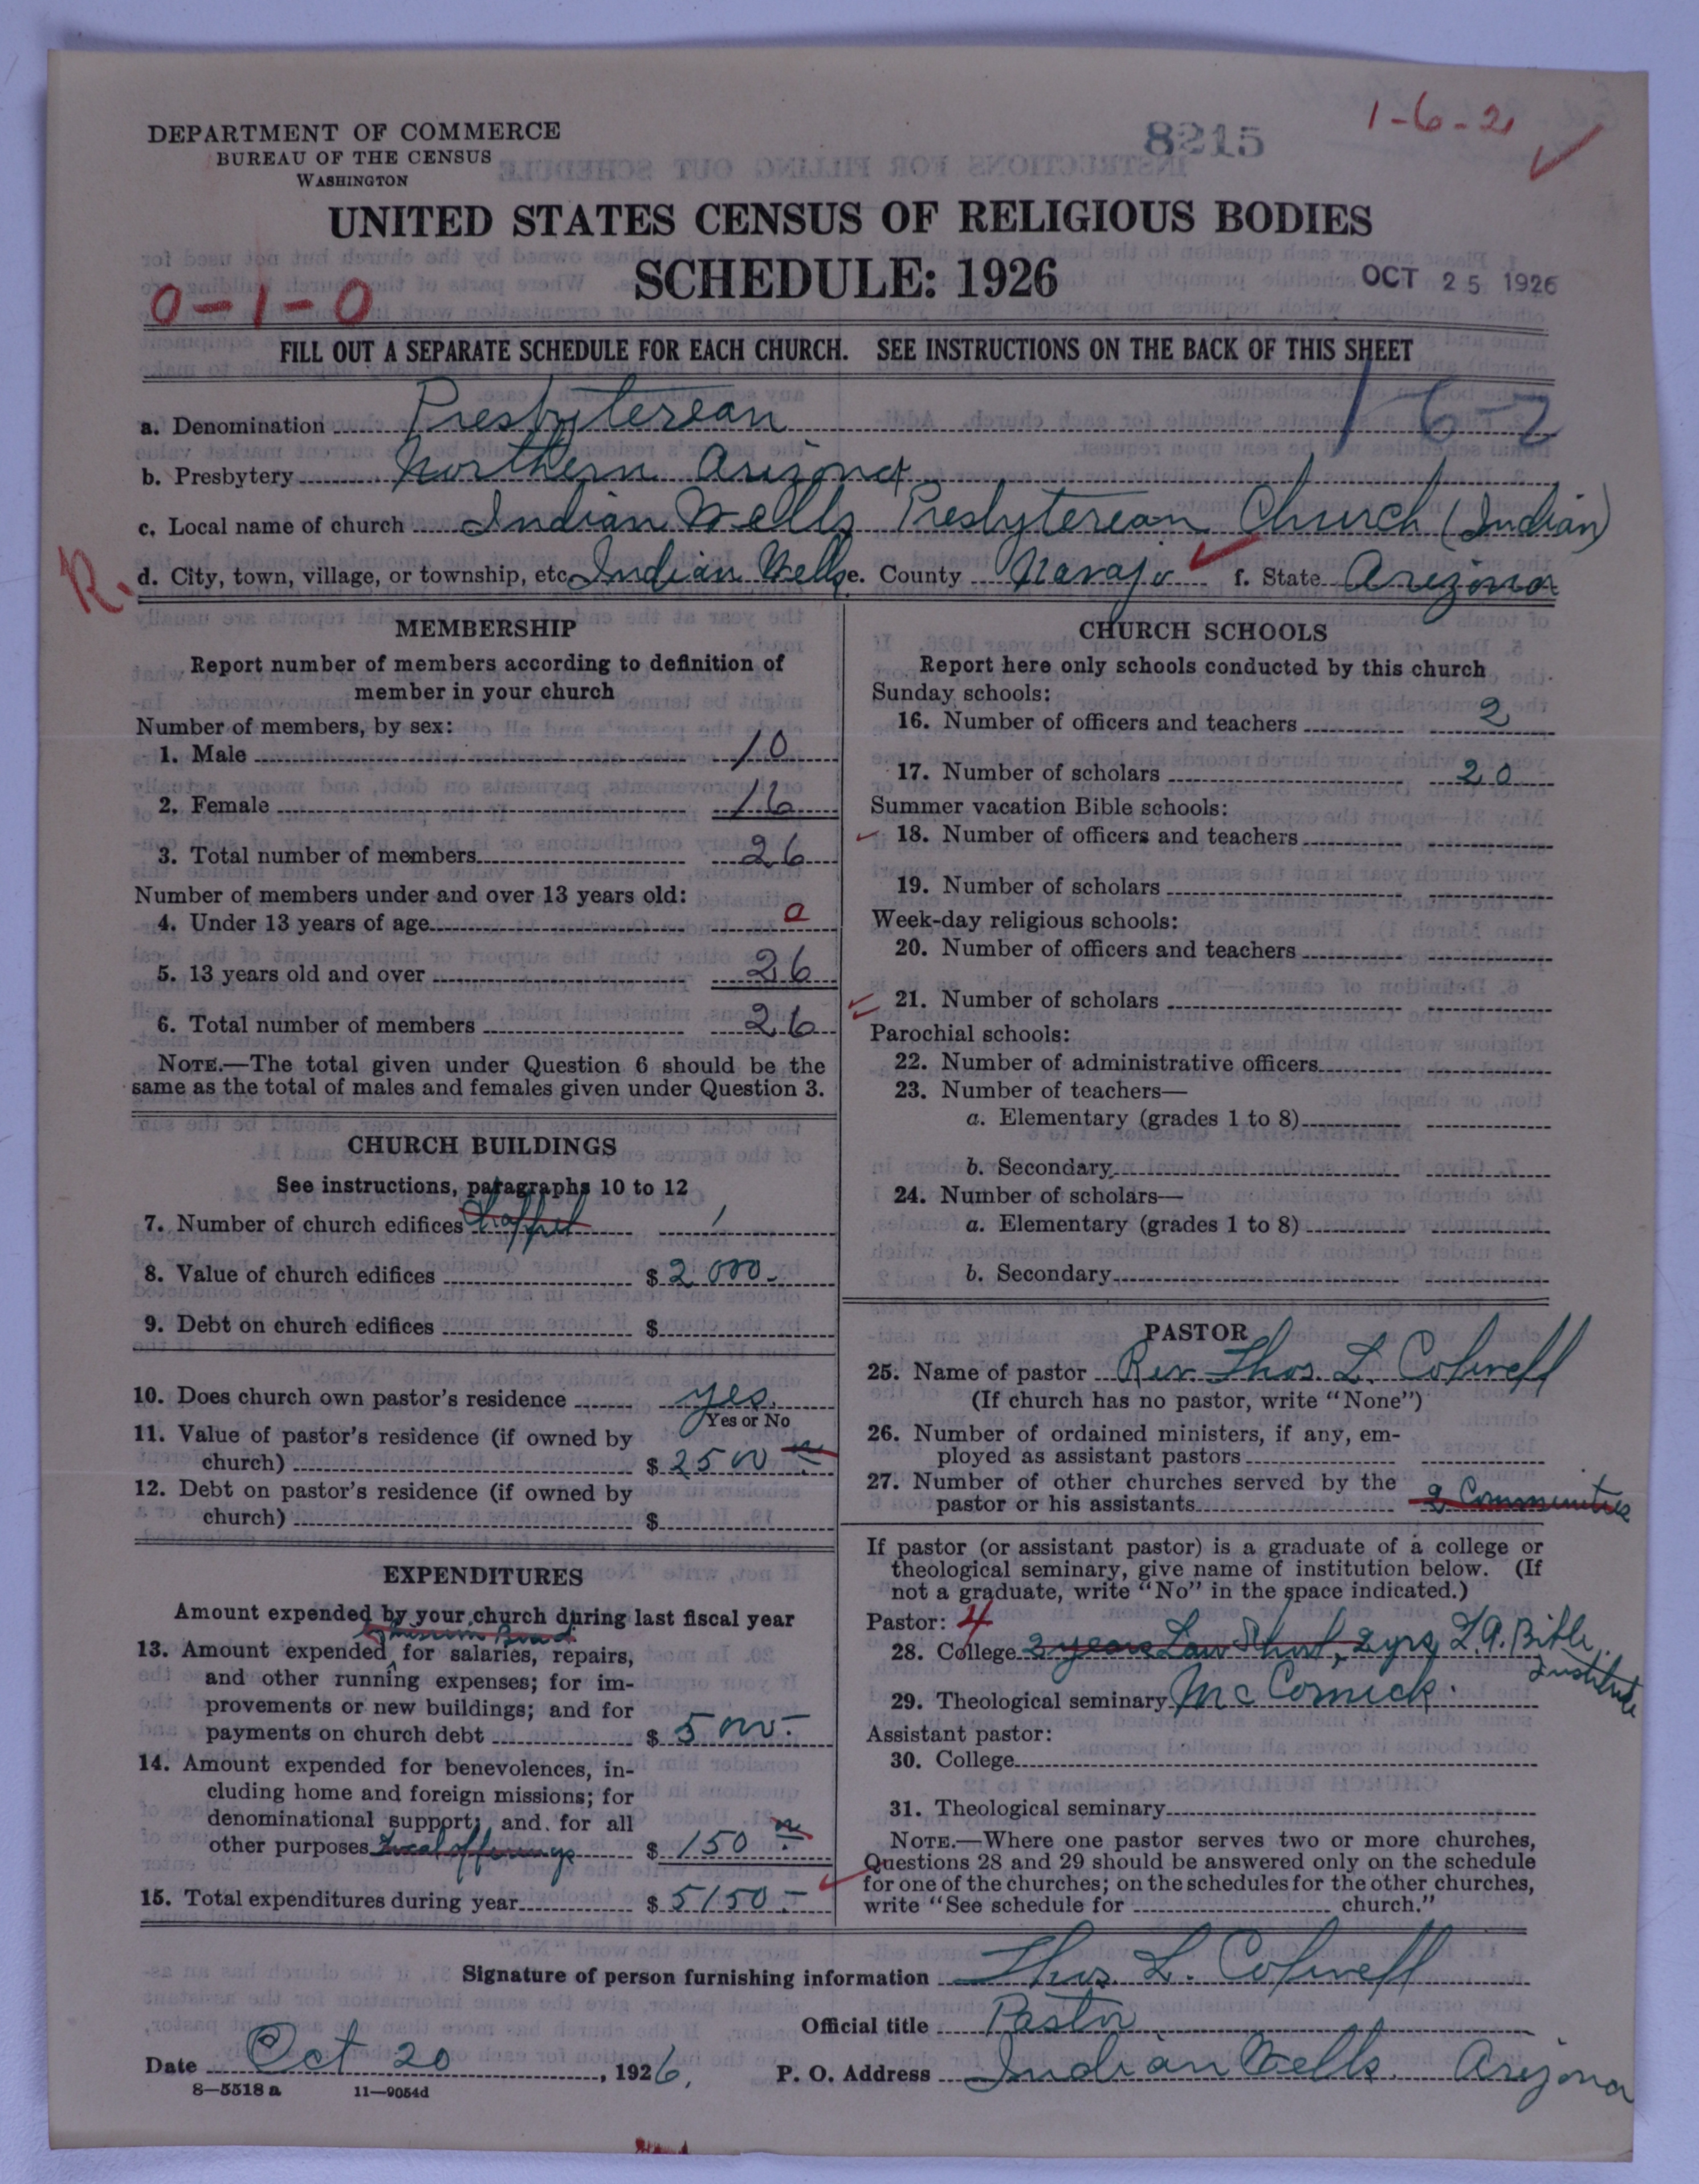 1-6-2
DEPARTMENT OF COMMERCE
BUREAU OF THE CENSUS
WASHINGTON
8215
UNITED STATES CENSUS OF RELIGIOUS BODIES
SCHEDULE: 1926
OCT 25 1926
0-1-0
FILL OUT A SEPARATE SCHEDULE FOR EACH CHURCH. SEE INSTRUCTIONS ON THE BACK OF THIS SHEET
1 6-2
a. Denomination Presbyterean
b. Presbytery Northern Arizona
c. Local name of church Indian Wells Presbyterean Church (Indian)
R.
d. City, town, village, or township, etc. Indian Wells e. County Navajo f. State Arizona
MEMBERSHIP
Report number of members according to definition of
member in your church
Number of members, by sex:
1. Male 10
2. Female 16
3. Total number of members 26
Number of members under and over 13 years old:
4. Under 13 years of age 0
5. 13 years old and over 26
6. Total number of members 26
NOTE.—The total given under Question 6 should be the
same as the total of males and females given under Question 3.
CHURCH BUILDINGS
See instructions, paragraphs 10 to 12
7. Number of church edifices 1
8. Value of church edifices $ 2000.-
9. Debt on church edifices $
10. Does church own pastor's residence yes.
Yes or No
11. Value of pastor's residence (if owned by
church) $ 2500
12. Debt on pastor's residence (if owned by
church) $
EXPENDITURES
Amount expended by your church during last fiscal year
13. Amount expended for salaries, repairs,
and other running expenses; for im-
provements or new buildings; and for
payments on church debt $ 5000.-
14. Amount expended for benevolences, in-
cluding home and foreign missions; for
denominational support; and for all
other purposes Local offerings $ 150
15. Total expenditures during year $ 5150.-
CHURCH SCHOOLS
Report here only schools conducted by this church
Sunday schools:
16. Number of officers and teachers 2
17. Number of scholars 20
Summer vacation Bible schools:
18. Number of officers and teachers
19. Number of scholars
Week-day religious schools:
20. Number of officers and teachers
21. Number of scholars
Parochial schools:
22. Number of administrative officers
23. Number of teachers—
a. Elementary (grades 1 to 8)
b. Secondary
24. Number of scholars—
a. Elementary (grades 1 to 8)
b. Secondary
PASTOR
25. Name of pastor Rev. Thos. L. Cofwell
(If church has no pastor, write "None")
26. Number of ordained ministers, if any, em-
ployed as assistant pastors
27. Number of other churches served by the
pastor or his assistants 2 Communities
If pastor (or assistant pastor) is a graduate of a college or
theological seminary, give name of institution below. (If
not a graduate, write "No" in the space indicated.)
Pastor: 4
28. College 2 years Law School, 2 yrs L.A. Bible
Institute
29. Theological seminary McCormick.
Assistant pastor:
30. College
31. Theological seminary
NOTE.—Where one pastor serves two or more churches,
Questions 28 and 29 should be answered only on the schedule
for one of the churches; on the schedules for the other churches,
write "See schedule for church."
Signature of person furnishing information Thos. L. Cofwell
Official title Pastor
Date Oct 20, 1926. P. O. Address Indian Wells. Arizona
8—5518 a 11—9054d